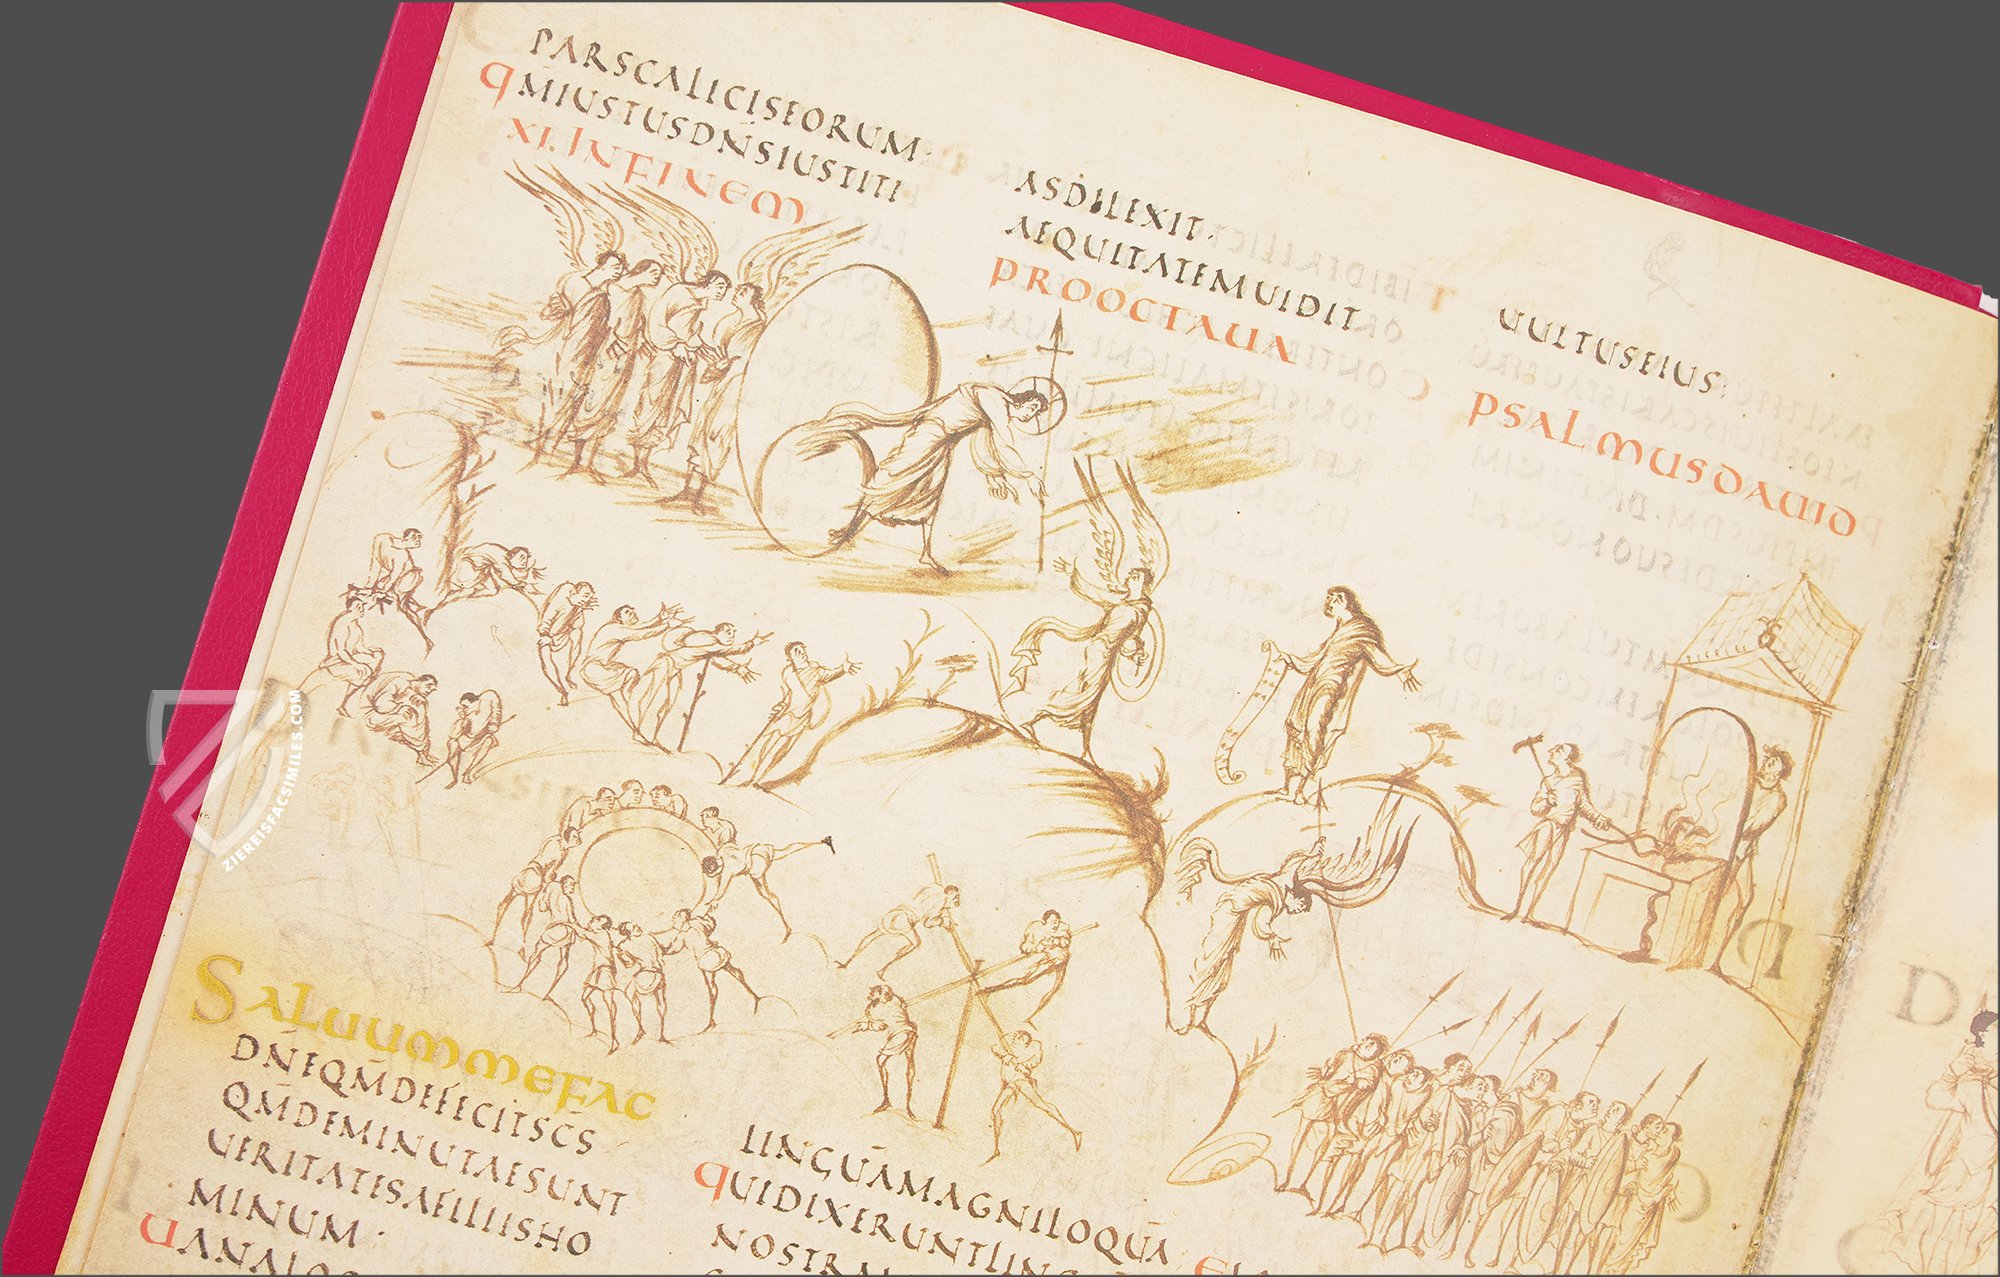 PARSCALICISEORUM·
QM̅IUSTUSDN̅SIUSTITI
XI. INFINEM
ASDILEXIT·
AEQUITATEMUIDIT
PROOCTAUA
UULTUSEIUS:
PSALMUSDAUID
SALUUMMEFAC
DN̅EQM̅DEFECITSC̅S
QM̅DEMINUTAESUNT
UERITATESAFILIISHO
MINUM·
UANALOC
LINGUA̅MAGNILOQUA̅
QUIDIXERUNTLING
NOSTRA
ZIEREISFACSIMILES.COM